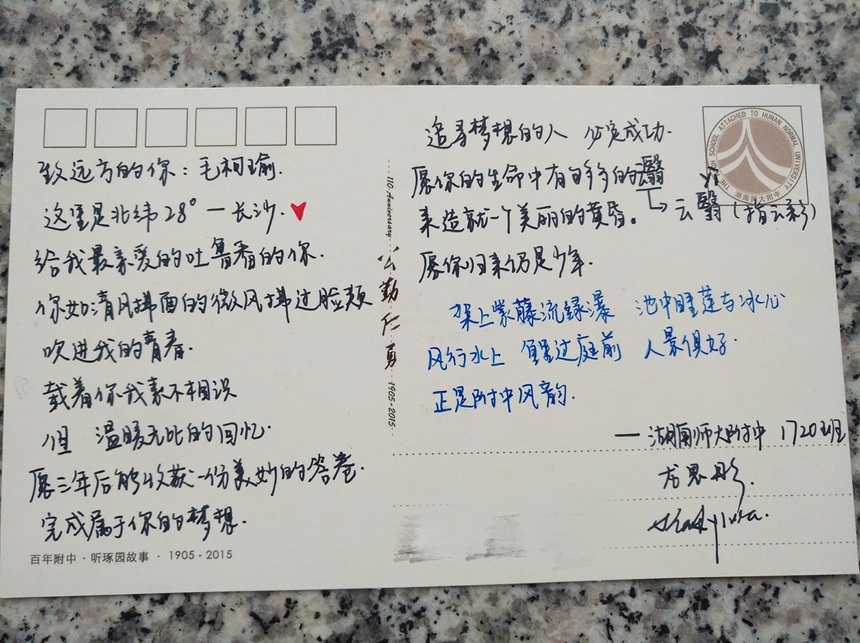 致远方的你：毛相瑜.
这里是北纬28° — 长沙.
给我最亲爱的吐鲁番的你.
你如清风拂面的微风拂过脸颊
吹进我的青春.
载着你我素不相识
但 温暖无比的回忆.
愿三年后能收获一份美妙的答卷.
完成属于你的梦想.
百年附中·听琢园故事·1905-2015
110 Anniversary
公勤仁勇
1905-2015
追寻梦想的人 必定成功.
愿你的生命中有旬多的云翳
yì
来造就一个美丽的黄昏。
云翳（指云彩）
愿你归来仍是少年.
架上紫藤流绿瀑 池中睡莲与冰心
风行水上 健过庭前 人景俱好.
正是附中风韵.
— 湖南师大附中 1720班
龙思彤
THE HIGH SCHOOL ATTACHED TO HUNAN NORMAL UNIVERSITY
湖南师大附中